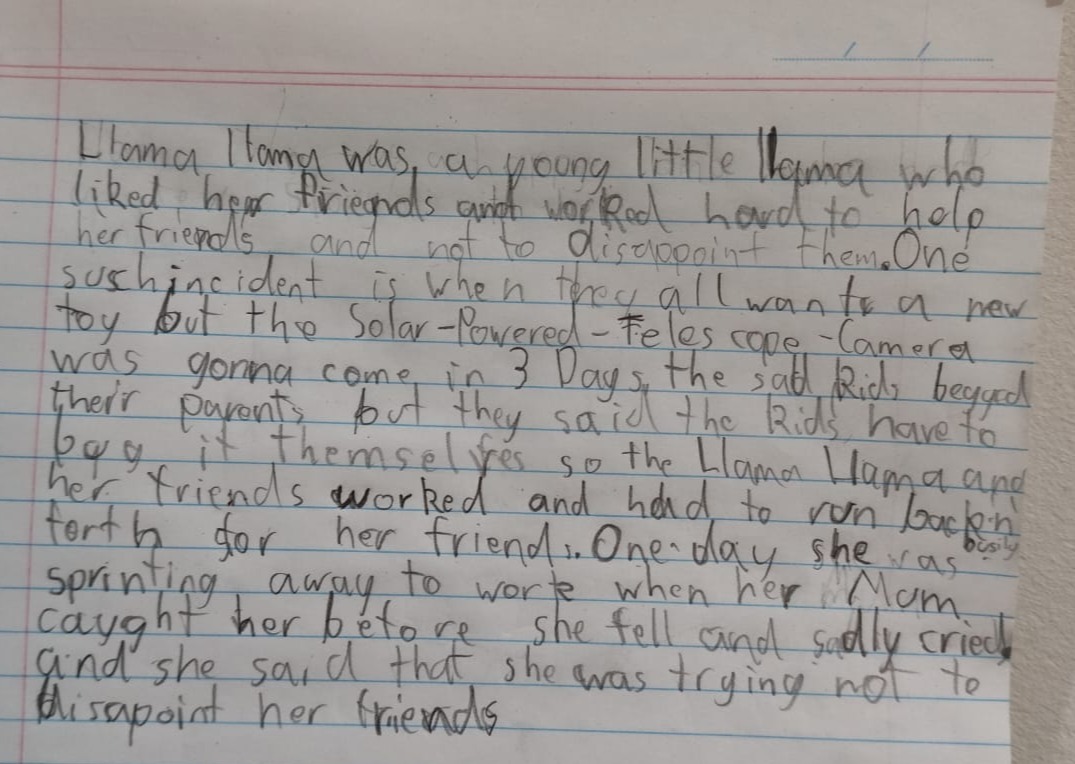 Llama llama was a young little llama who
liked her friends and worked hard to help
her friends and not to disappoint them. One
such incident is when they all want a new
toy but the Solar-Powered-Telescope-Camera
was gonna come in 3 Days, the sad kids begged
their parents but they said the kids have to
buy it themselves so the Llama Llama and
her friends worked and had to run back n
forth for her friends. One-day she was busily
sprinting away to work when her Mom
caught her before she fell and sadly cried
and she said that she was trying not to
disapoint her friends